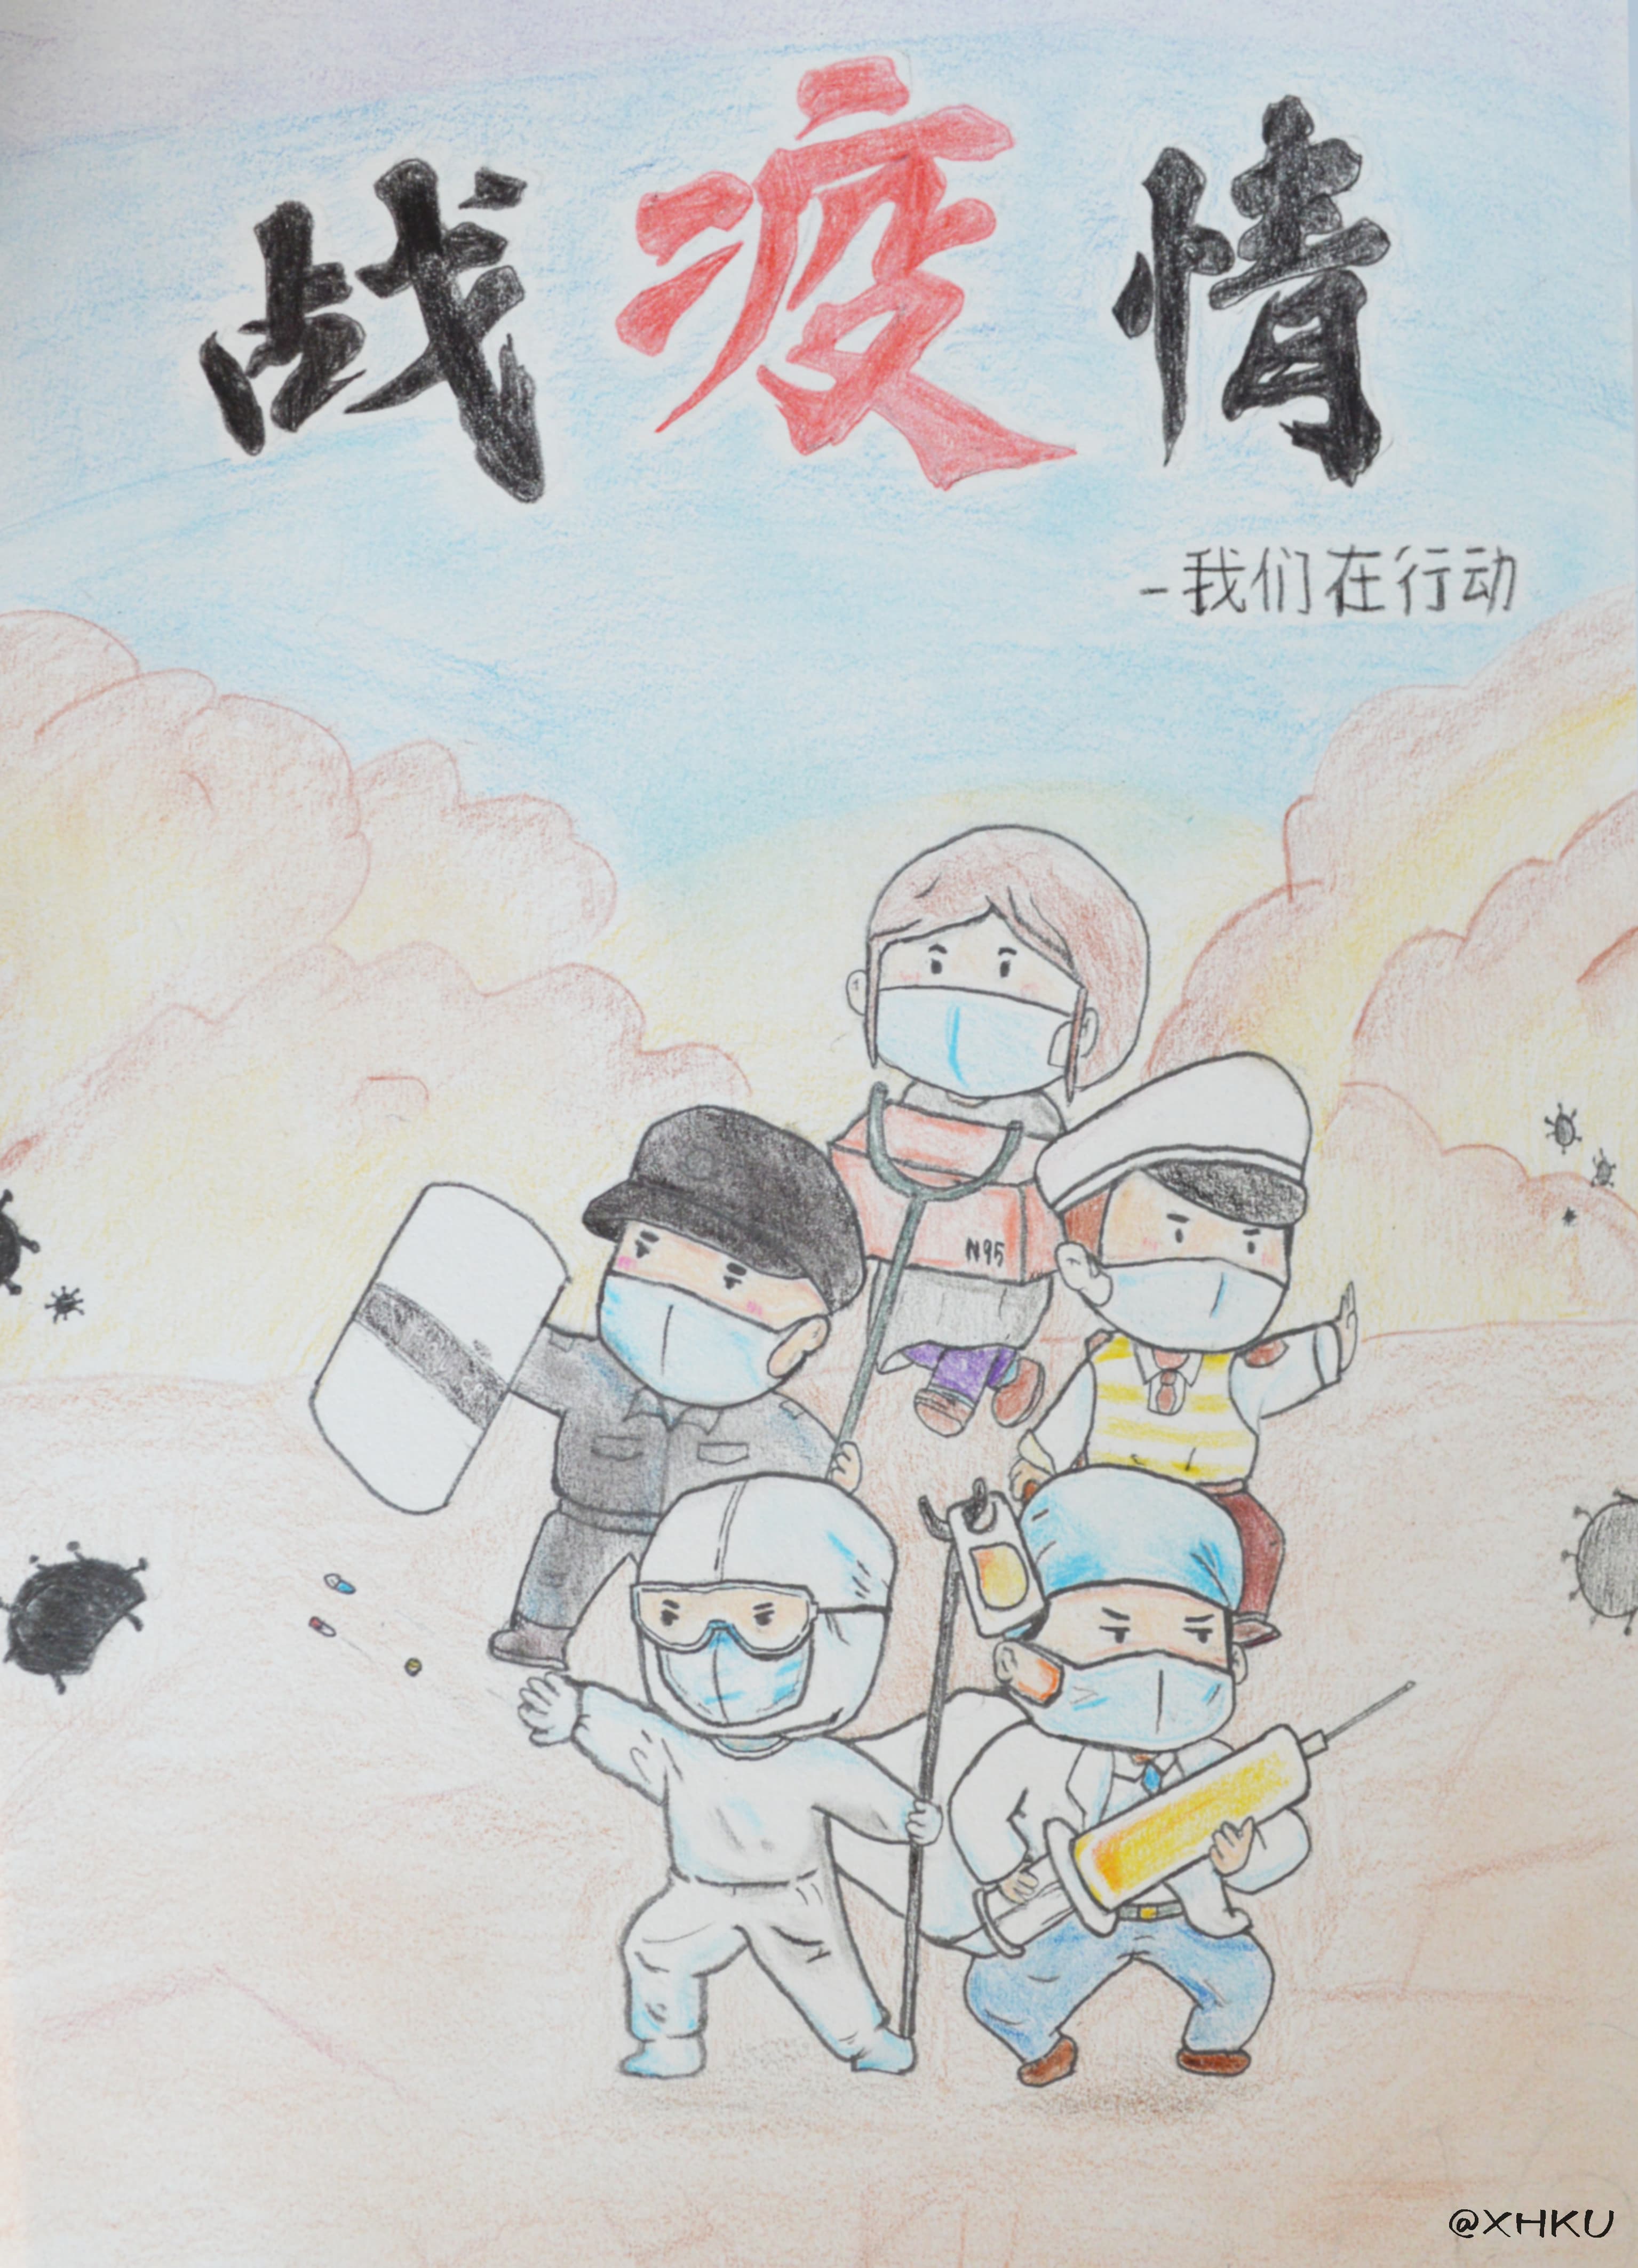 战疫情
-我们在行动
N95
@XHKU